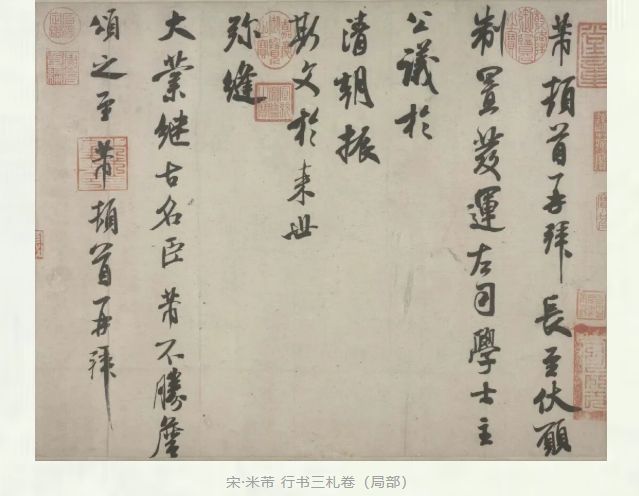 芾頓首再拜 長至伏願
制置發運左司學士主
公議於
清朝振
斯文於来世
弥縫
大業継古名臣 芾不勝詹
頌之至 芾頓首再拜
宋·米芾 行书三札卷（局部）